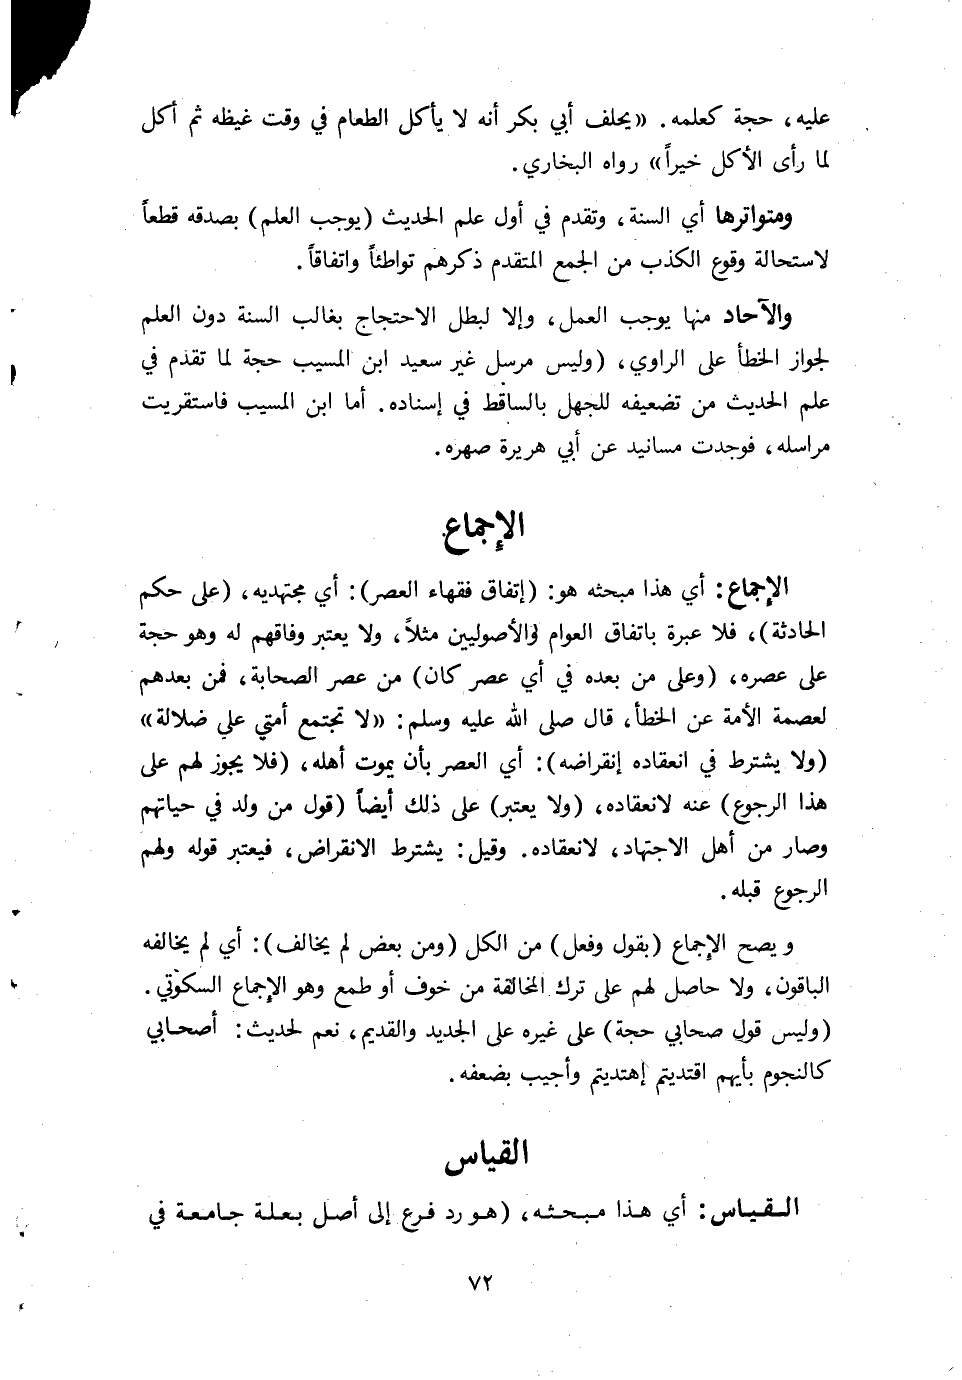 عليه، حجة كعلمه. «يحلف أبي بكر أنه لا يأكل الطعام في وقت غيظه ثم أكل
لما رأى الأكل خيراً» رواه البخاري.
ومتواترها أي السنة، وتقدم في أول علم الحديث (يوجب العلم) بصدقه قطعاً
لاستحالة وقوع الكذب من الجمع المتقدم ذكرهم تواطئاً واتفاقاً.
والآحاد منها يوجب العمل، وإلا لبطل الاحتجاج بغالب السنة دون العلم
لجواز الخطأ على الراوي، (وليس مرسل غير سعيد ابن المسيب حجة لما تقدم في
علم الحديث من تضعيفه للجهل بالساقط في إسناده. أما ابن المسيب فاستقريت
مراسله، فوجدت مسانيد عن أبي هريرة صهره.
الإجماع
الإجماع: أي هذا مبحثه هو: (إتفاق فقهاء العصر): أي مجتهديه، (على حكم
الحادثة)، فلا عبرة باتفاق العوام والأصوليين مثلاً، ولا يعتبر وفاقهم له وهو حجة
على عصره، (وعلى من بعده في أي عصر كان) من عصر الصحابة، فمن بعدهم
لعصمة الأمة عن الخطأ، قال صلى الله عليه وسلم: «لا تجتمع أمتي على ضلالة»
(ولا يشترط في انعقاده إنقراضه): أي العصر بأن يموت أهله، (فلا يجوز لهم على
هذا الرجوع) عنه لانعقاده، (ولا يعتبر) على ذلك أيضاً (قول من ولد في حياتهم
وصار من أهل الاجتهاد، لانعقاده. وقيل: يشترط الانقراض، فيعتبر قوله ولهم
الرجوع قبله.
ويصح الإجماع (بقول وفعل) من الكل (ومن بعض لم يخالف): أي لم يخالفه
الباقون، ولا حاصل لهم على ترك المخالفة من خوف أو طمع وهو الإجماع السكوتي.
(وليس قول صحابي حجة) على غيره على الجديد والقديم، نعم لحديث: أصحابي
كالنجوم بأيهم اقتديتم إهتديتم وأجيب بضعفه.
القياس
القياس: أي هذا مبحثه، (هو رد فرع إلى أصل بعلة جامعة في
٧٢